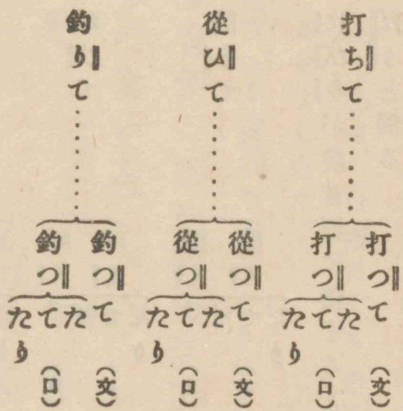 打ちて……
打つて（文）
打つ
た
て
たり
（口）
從ひて……
從つて（文）
從つ
た
て
たり
（口）
釣りて……
釣つて（文）
釣つ
た
て
たり
（口）